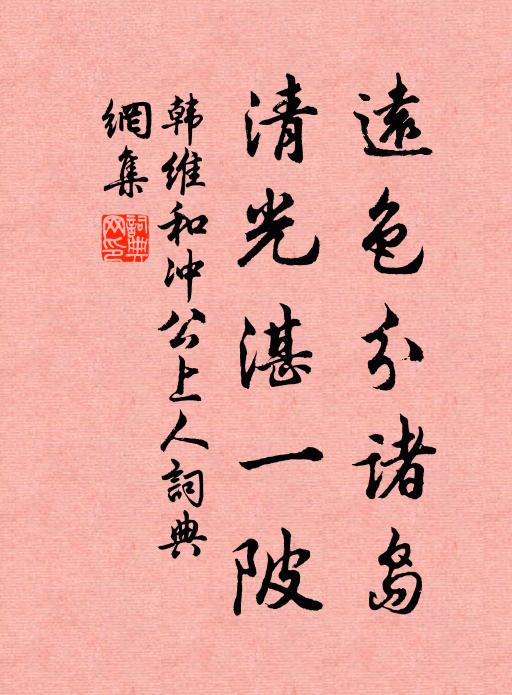 遠色分诸島
清光湛一陂
韩维和冲公上人詞典
網集
詞典网印